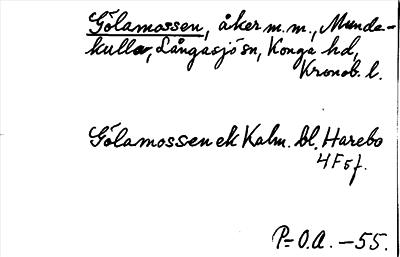 Gölamossen, åker m.m., Munde-
kulla, Långasjö sn, Konga hd,
Kronob. l.
Gölamossen ek Kalm. bl. Harebo
4F5f.
P= O.A. -55.